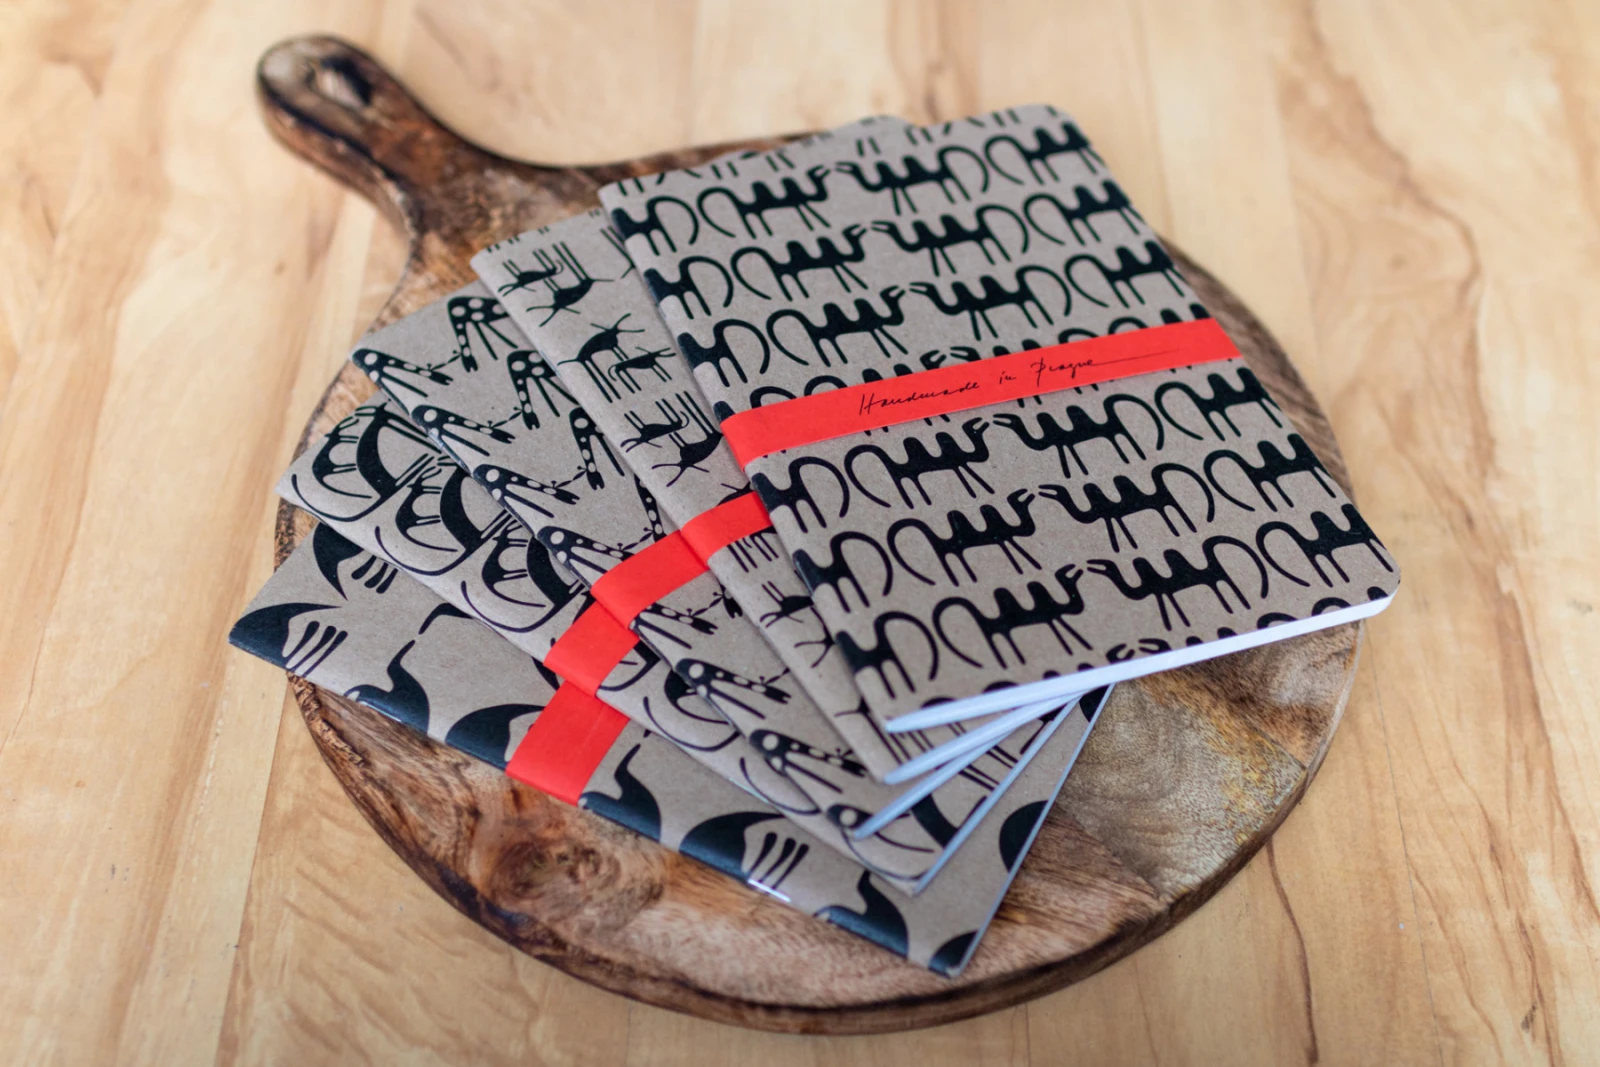 Handmade in Prague